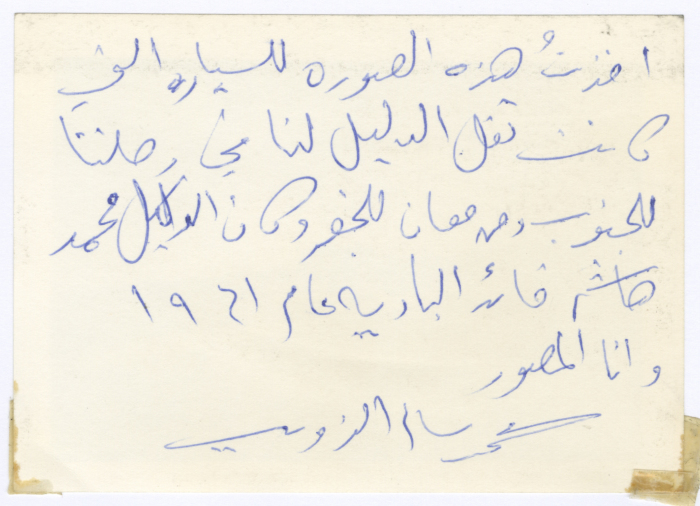 اخذتُ هذه الصوره للسياره التي
كانت تقل الدليل لنا في رحلتنا
للجنوب ومن معان للجفر وكان الدليل محمد
هاشم قائد الباديه عام ١٩٦١
وانا المصور
محمد سالم